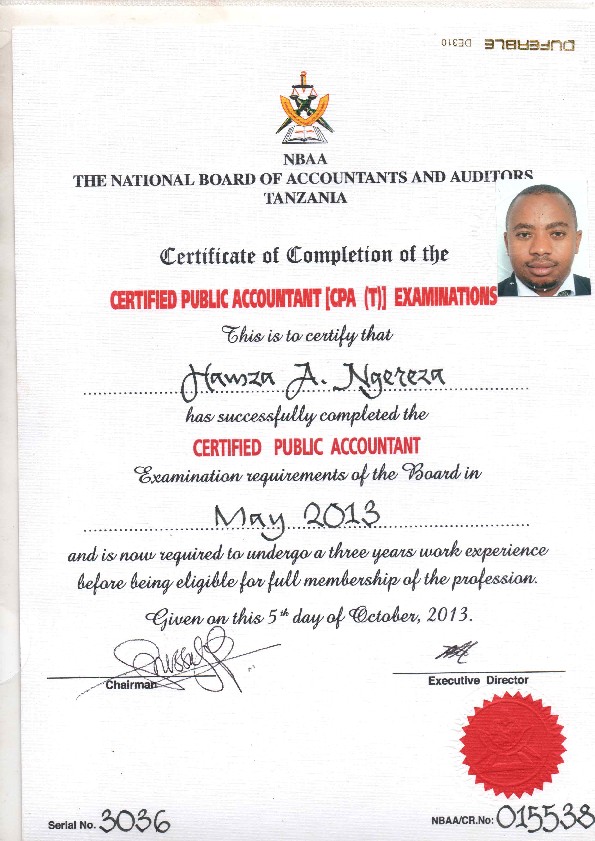 DUFERABLE DE310
NBAA
THE NATIONAL BOARD OF ACCOUNTANTS AND AUDITORS
TANZANIA
Certificate of Completion of the
CERTIFIED PUBLIC ACCOUNTANT [CPA (T)] EXAMINATIONS
This is to certify that
Hamza A. Ngereza
has successfully completed the
CERTIFIED PUBLIC ACCOUNTANT
Examination requirements of the Board in
May 2013
and is now required to undergo a three years work experience
before being eligible for full membership of the profession.
Given on this 5th day of October, 2013.
Chairman
Executive Director
Serial No. 3036
NBAA/CR.No: 015538